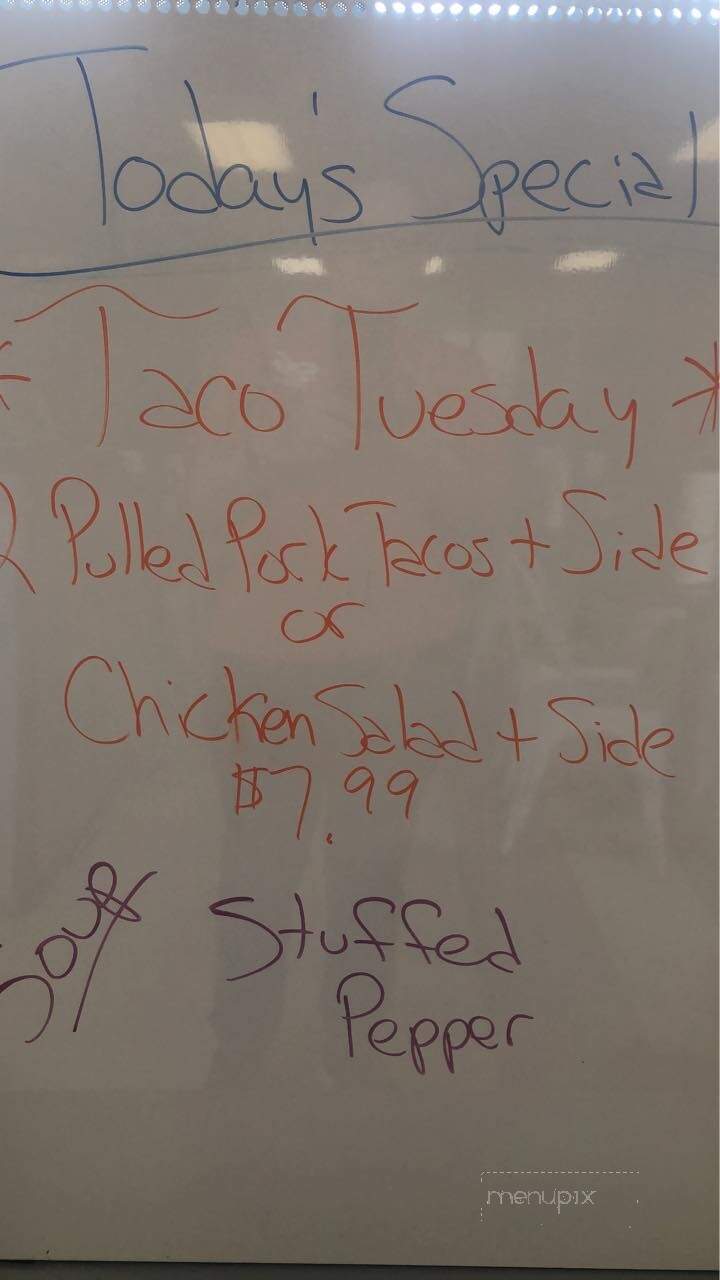 Today's Special
* Taco Tuesday *
2 Pulled Pork Tacos + Side
or
Chicken Salad + Side
$7.99
Soup Stuffed
Pepper
menupix